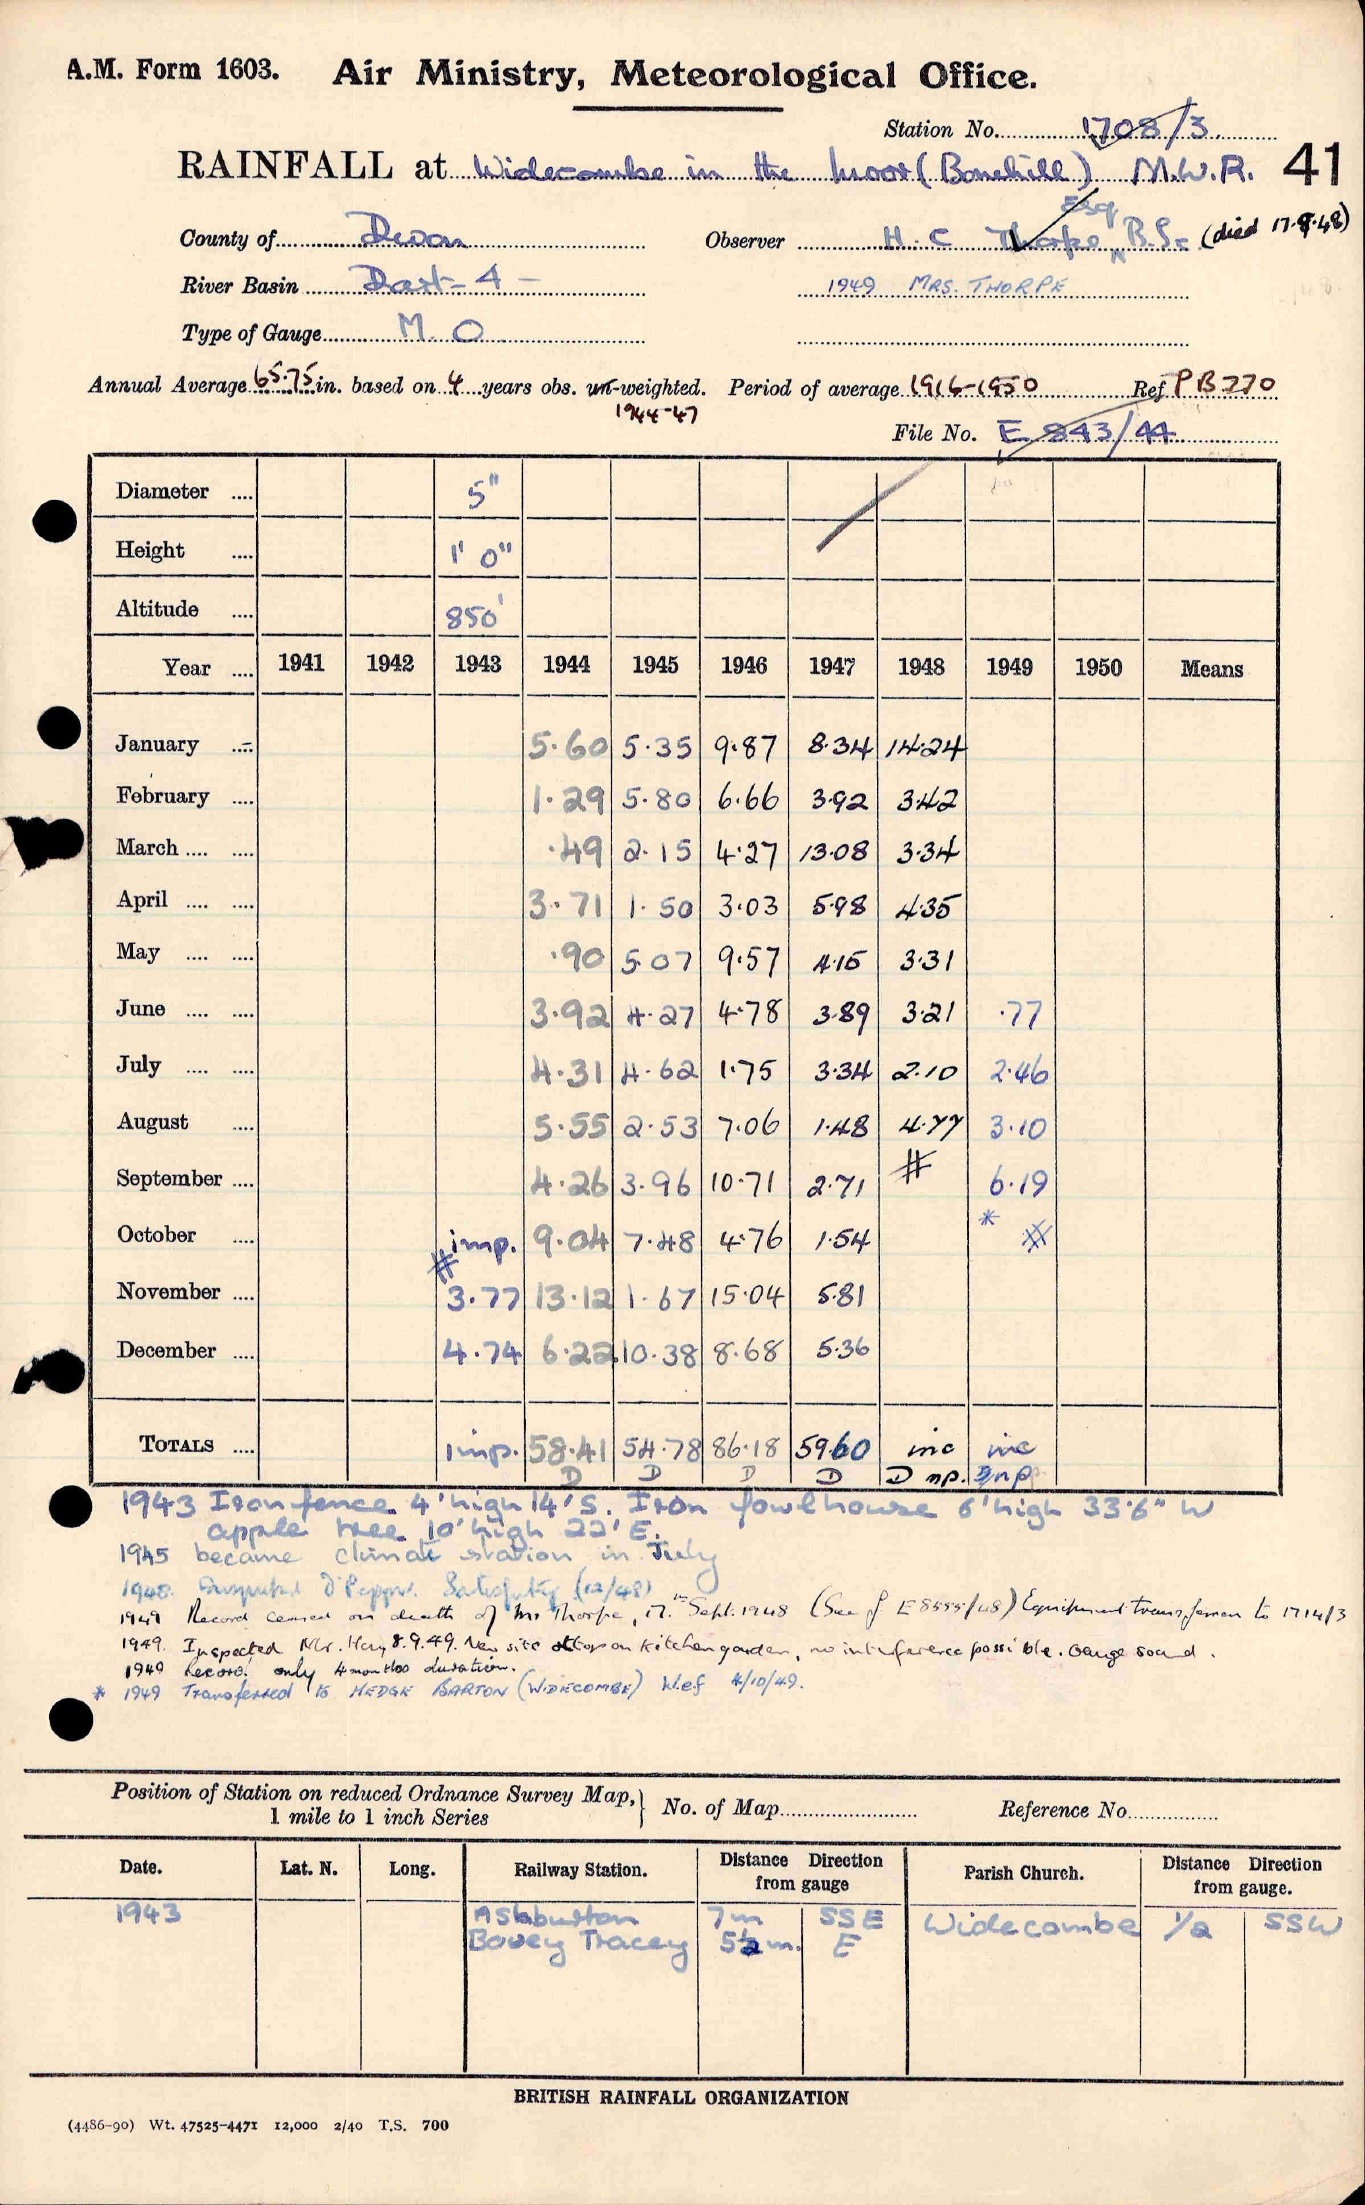 A.M. Form 1603. Air Ministry, Meteorological Office.
Station No. 1708/3
RAINFALL at Widecombe in the Moor (Bonehill) M.W.R. 41
County of Devon Observer H. C Thorpe Esq B.Sc (died 17.9.48)
River Basin Dart - 4 - 1949 MRS. THORPE
Type of Gauge M. O
Annual Average 65.75 in. based on 4 years obs. un-weighted. Period of average 1916-1950 Ref PB770
1944-47
File No. E 843/44
Diameter .... 5"
Height .... 1' 0"
Altitude .... 850'
Year .... 1941 1942 1943 1944 1945 1946 1947 1948 1949 1950 Means
January .... 5.60 5.35 9.87 8.34 14.24
February .... 1.29 5.80 6.66 3.92 3.42
March .... .... .49 2.15 4.27 13.08 3.34
April .... .... 3.71 1.50 3.03 5.98 4.35
May .... .... .90 5.07 9.57 4.15 3.31
June .... .... 3.92 4.27 4.78 3.89 3.21 .77
July .... .... 4.31 4.62 1.75 3.34 2.10 2.46
August .... 5.55 2.53 7.06 1.48 4.77 3.10
September .... 4.26 3.96 10.71 2.71 # 6.19
October .... imp. 9.04 7.48 4.76 1.54 * #
November .... # 3.77 13.12 1.67 15.04 5.81
December .... 4.74 6.22 10.38 8.68 5.36
TOTALS .... imp. 58.41 54.78 86.18 59.60 inc inc
D D D D D np. np
1943 Iron fence 4' high 14' S. Iron fowlhouse 6' high 33'6" W
apple tree 10' high 22' E.
1945 became climate station in July
1948. Inspected (12/48)
1949 Record ceased on death of Mr Thorpe, 17th Sept. 1948 (See f E8555/48) Equipment transferred to 1714/3
1949. Inspected Mr. Hay 8.9.49. New site on kitchen garden, no interference possible. Gauge sound.
1949 Record only 4 months duration.
* 1949 Transferred to HEDGE BARTON (WIDECOMBE) w.e.f 4/10/49.
Position of Station on reduced Ordnance Survey Map, } No. of Map Reference No.
1 mile to 1 inch Series
Date. Lat. N. Long. Railway Station. Distance Direction from gauge Parish Church. Distance Direction from gauge.
1943 Ashburton 7m SSE Widecombe 1/2 SSW
Bovey Tracey 5½ m. E
BRITISH RAINFALL ORGANIZATION
(4486-90) Wt. 47525-4471 12,000 2/40 T.S. 700